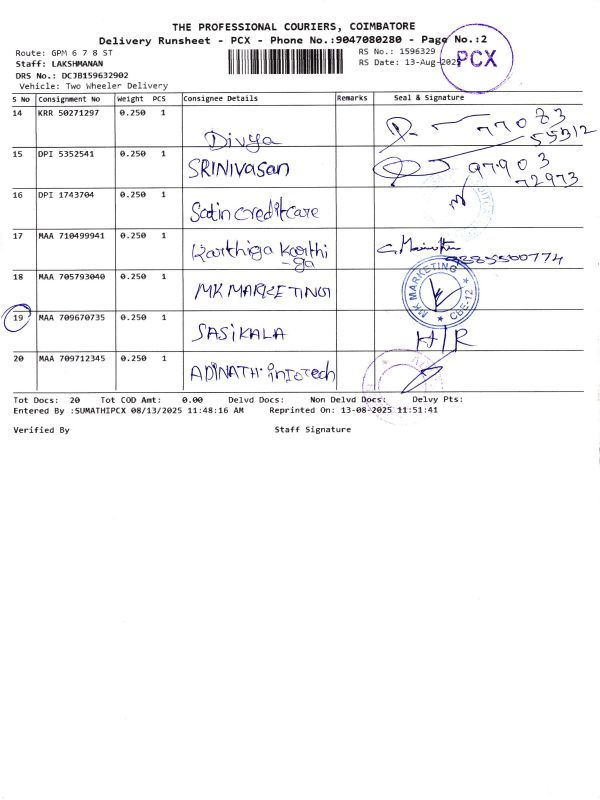 THE PROFESSIONAL COURIERS, COIMBATORE
Delivery Runsheet - PCX - Phone No.:9047080280 - Page No.:2
Route: GPM 6 7 8 ST
RS No.: 1596329
Staff: LAKSHMANAN
RS Date: 13-Aug-2025
PCX
DRS No.: DCJB159632902
Vehicle: Two Wheeler Delivery
S No Consignment No Weight PCS Consignee Details Remarks Seal & Signature
14 KRR 50271297 0.250 1 Divya 77083
55312
15 DPI 5352541 0.250 1 SRINIVASan 97903
72973
16 DPI 1743704 0.250 1 Satin creditcare
17 MAA 710499941 0.250 1 Karthiga Karthi
-ga
18 MAA 705793040 0.250 1 MK MARKETING MK MARKETING CBE-12
19 MAA 709670735 0.250 1 SASIKALA H/R
20 MAA 709712345 0.250 1 ADINATH infotech
Tot Docs: 20 Tot COD Amt: 0.00 Delvd Docs: Non Delvd Docs: Delvy Pts:
Entered By :SUMATHIPCX 08/13/2025 11:48:16 AM Reprinted On: 13-08-2025 11:51:41
Verified By Staff Signature